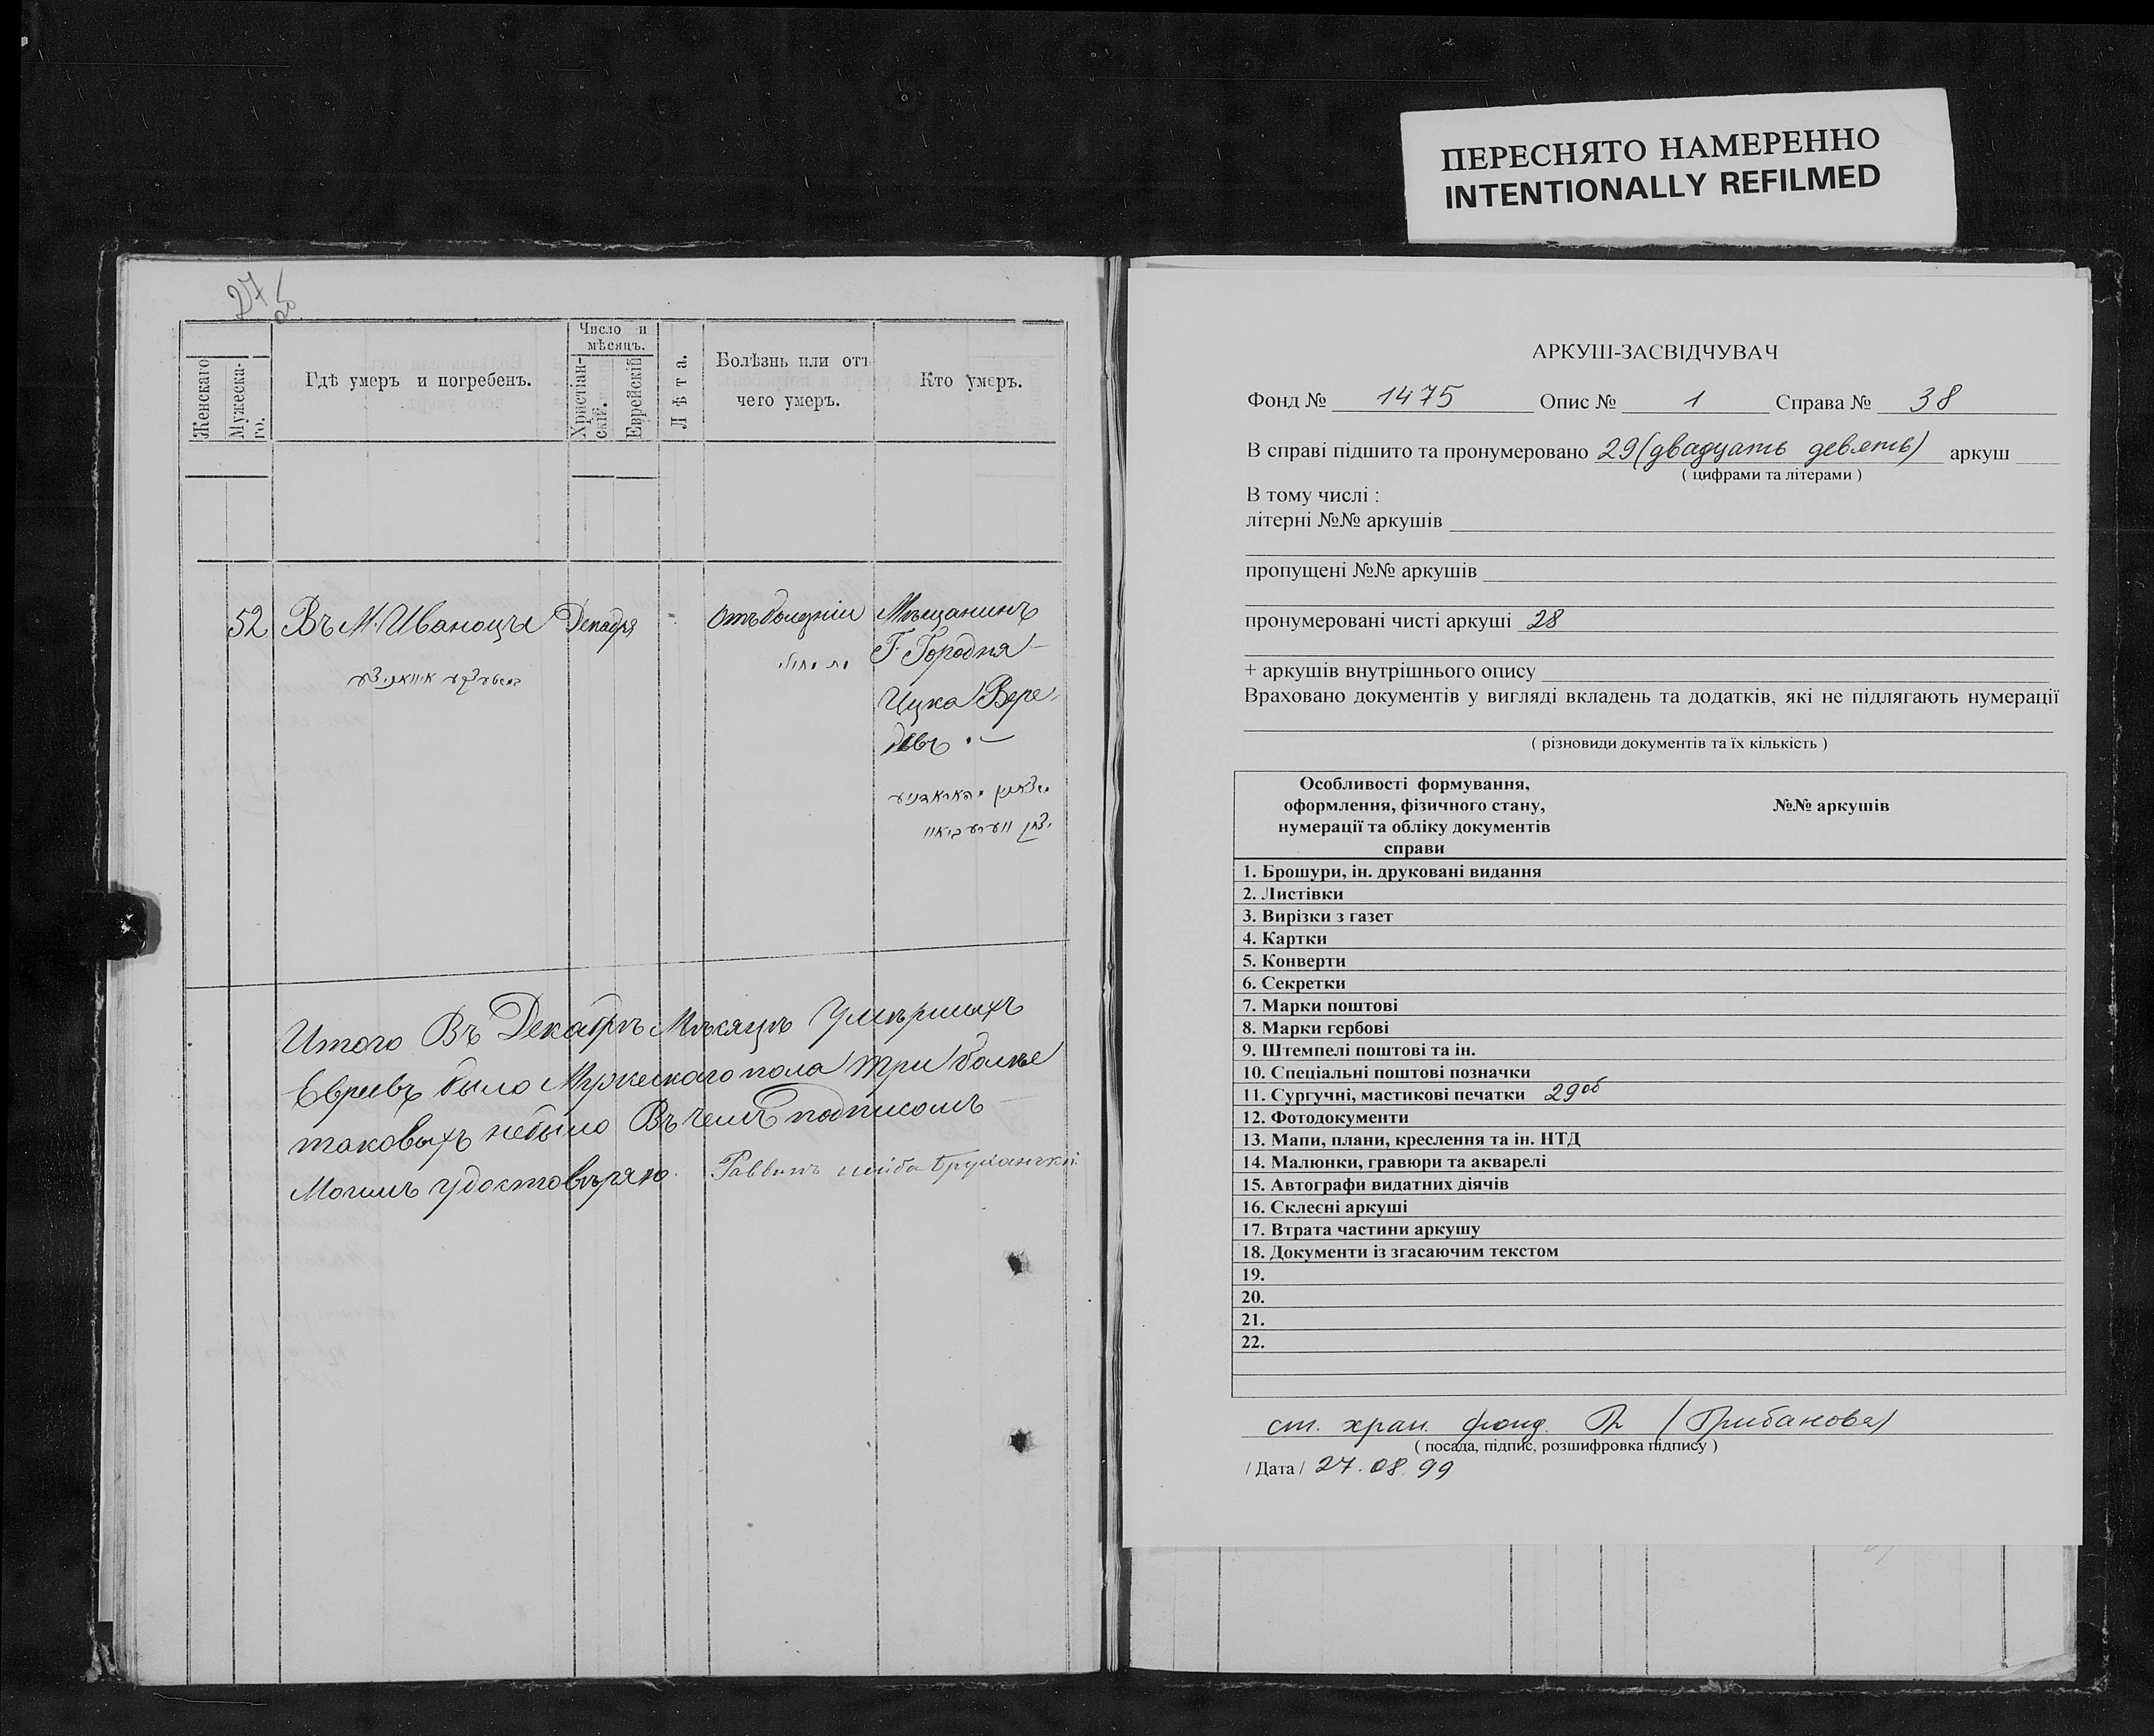 ПЕРЕСНЯТО НАМЕРЕННО
INTENTIONALLY REFILMED
27 об
Женскаго
Мужеска-
го.
Гдѣ умеръ и погребенъ.
Число и
мѣсяцъ.
Христіан-
скій.
Еврейскій
Лѣта.
Болѣзнь или отъ
чего умеръ.
Кто умеръ.
52 Въ М. Иваницы Декабря
Отъ болезніи
Мѣщанинъ
Г. Городня
Ицка Вере
Итого Въ Декабрѣ Мѣсяцѣ Умѣршихъ
Евреевъ было Мужескаго пола три болѣе
таковыхъ небыло Въ чемъ подписомъ
Моимъ удостовѣряю. Раввинъ
АРКУШ-ЗАСВІДЧУВАЧ
Фонд № 1475 Опис № 1 Справа № 38
В справі підшито та пронумеровано 29 (двадцать девять) аркуш
( цифрами та літерами )
В тому числі :
літерні №№ аркушів
пропущені №№ аркушів
пронумеровані чисті аркуші 28
+ аркушів внутрішнього опису
Враховано документів у вигляді вкладень та додатків, які не підлягають нумерації
( різновиди документів та їх кількість )
Особливості формування,
оформлення, фізичного стану,
нумерації та обліку документів
справи
№№ аркушів
1. Брошури, ін. друковані видання
2. Листівки
3. Вирізки з газет
4. Картки
5. Конверти
6. Секретки
7. Марки поштові
8. Марки гербові
9. Штемпелі поштові та ін.
10. Спеціальні поштові позначки
11. Сургучні, мастикові печатки 29об
12. Фотодокументи
13. Мапи, плани, креслення та ін. НТД
14. Малюнки, гравюри та акварелі
15. Автографи видатних діячів
16. Склеєні аркуші
17. Втрата частини аркушу
18. Документи із згасаючим текстом
19.
20.
21.
22.
ст. хран. фонд. (Грибанова)
( посада, підпис, розшифровка підпису )
/ Дата / 27.08.99